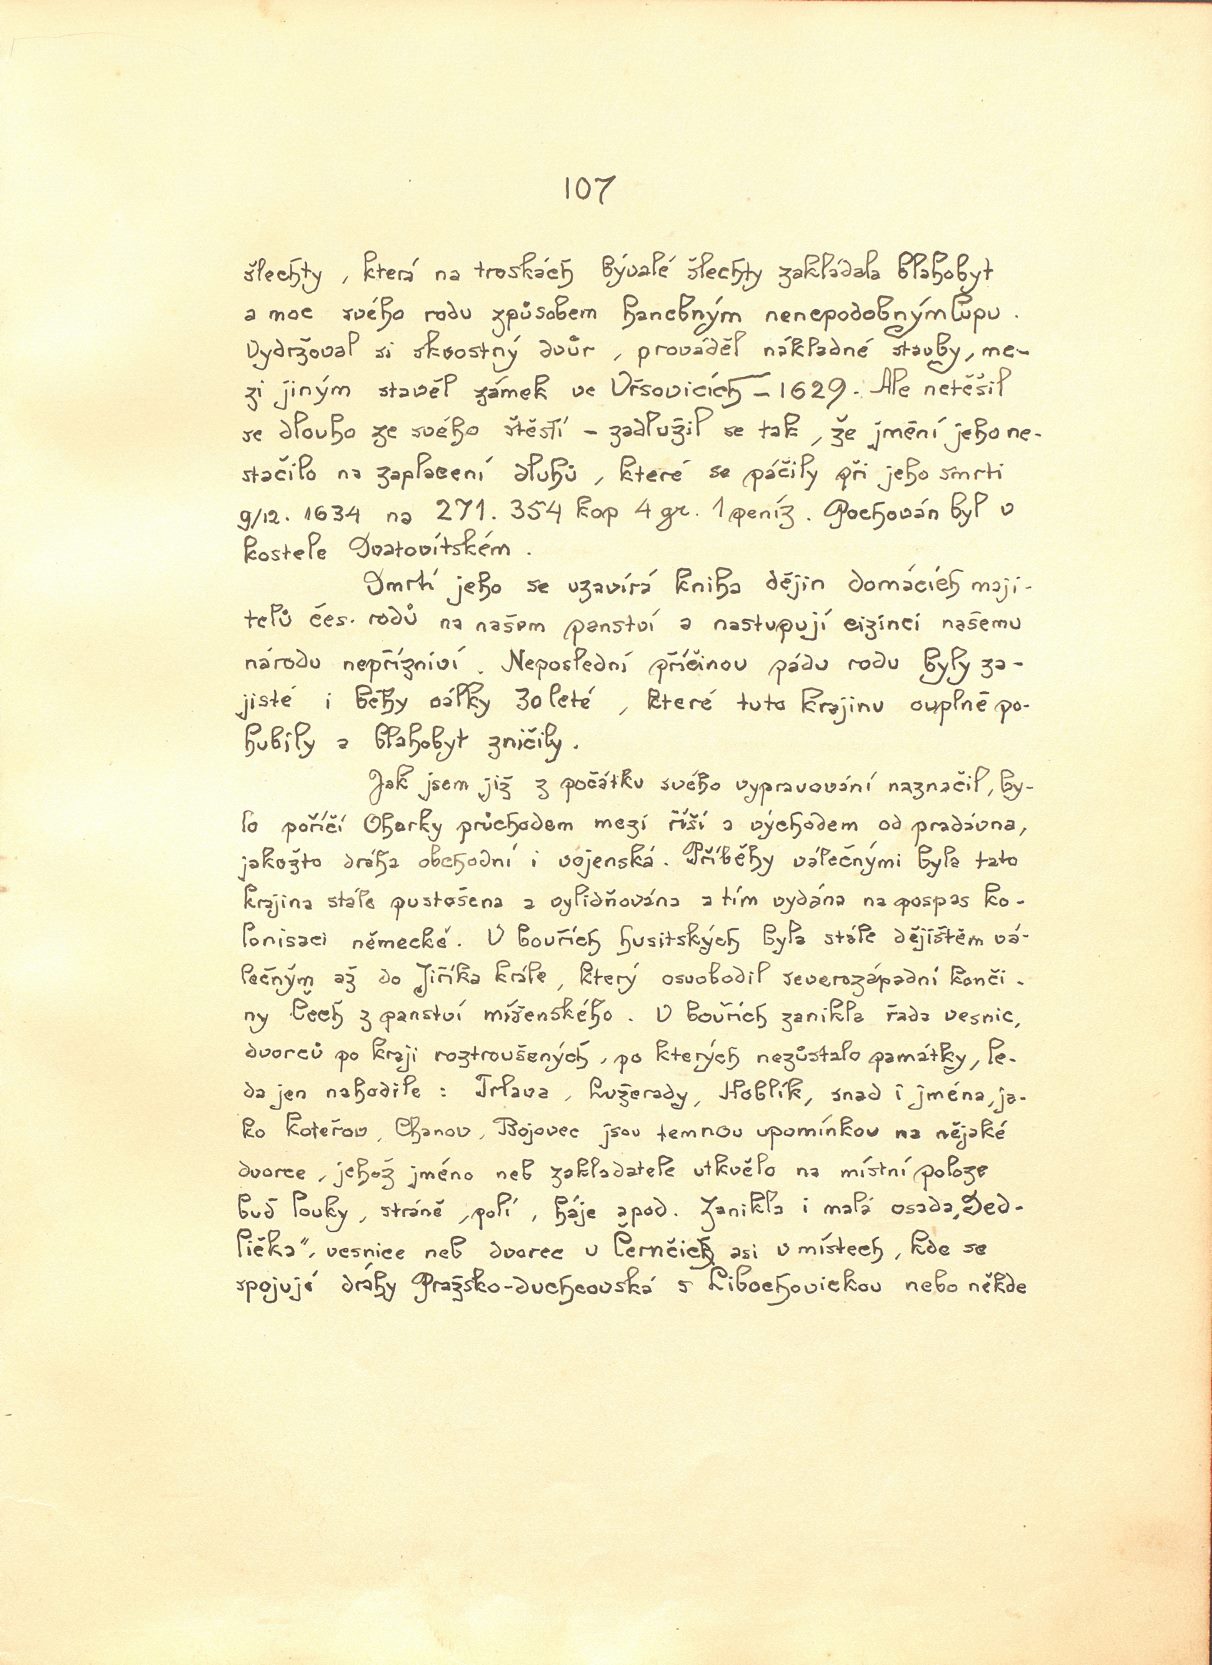 107
šlechty, která na troskách bývalé šlechty zakládala blahobyt
a moc svého rodu způsobem hanebným nenepodobným lupu.
Vydržoval si skvostný dvůr, prováděl nákladné stavby, me-
zi jiným stavěl zámek ve Vršovicích – 1629. Ale netěšil
se dlouho ze svého štěstí – zadlužil se tak, že jmění jeho ne-
stačilo na zaplacení dluhů, které se páčily při jeho smrti
9/12. 1634 na 271.354 kop 4 gr. 1 peníz. Pochován byl v
kostele Svatovítském.
Smrtí jeho se uzavírá kniha dějin domácích maji-
telů čes. rodů na našem panství a nastupují cizinci našemu
národu nepřízniví. Neposlední příčinou pádu rodu byly za-
jisté i běhy války 30leté, které tuto krajinu ouplně po-
hubily a blahobyt zničily.
Jak jsem již z počátku svého vypravování naznačil, by-
lo poříčí Oharky průchodem mezi říší a východem od pradávna,
jakožto dráha obchodní i vojenská. Příběhy válečnými byla tato
krajina stále pustošena a vylidňována a tím vydána na pospas ko-
lonisaci německé. V bouřích husitských byla stále dějištěm vá-
lečným až do Jiříka krále, který osvobodil severozápadní konči-
ny Čech z panství míšenského. V bouřích zanikla řada vesnic,
dvorců po kraji roztroušených, po kterých nezůstalo památky, le-
da jen nahodile: Trlava, Lužerady, Hoblík, snad i jména, ja-
ko Koteřov, Chanov, Bojovec jsou temnou upomínkou na nějaké
dvorce, jehož jméno neb zakladatele utkvělo na místní poloze
buď louky, stráně, polí, háje apod. Zanikla i malá osada „Sed-
lička“, vesnice neb dvorec u Černčich asi v místech, kde se
spojují dráhy Pražsko-duchcovská s Libochovickou nebo někde